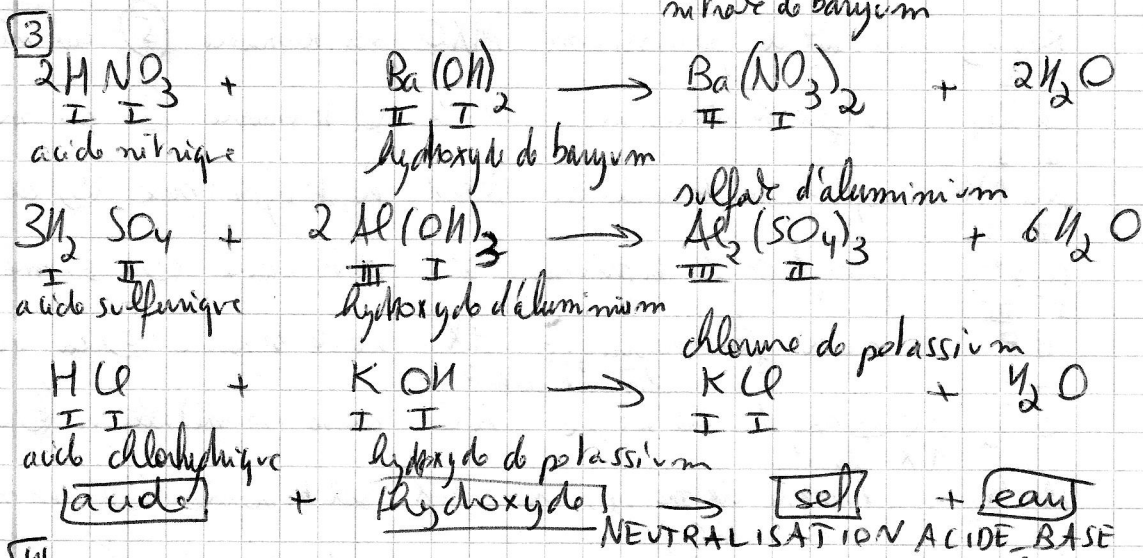 nitrate de baryum
3
2HNO₃ + Ba(OH)₂ → Ba(NO₃)₂ + 2H₂O
I I II I II I
acide nitrique hydroxyde de baryum
sulfate d'aluminium
3H₂SO₄ + 2Al(OH)₃ → Al₂(SO₄)₃ + 6H₂O
I II III I III II
acide sulfurique hydroxyde d'aluminium
chlorure de potassium
HCl + KOH → KCl + H₂O
I I I I I I
acide chlorhydrique hydroxyde de potassium
acide + hydroxyde → sel + eau
NEUTRALISATION ACIDE_BASE